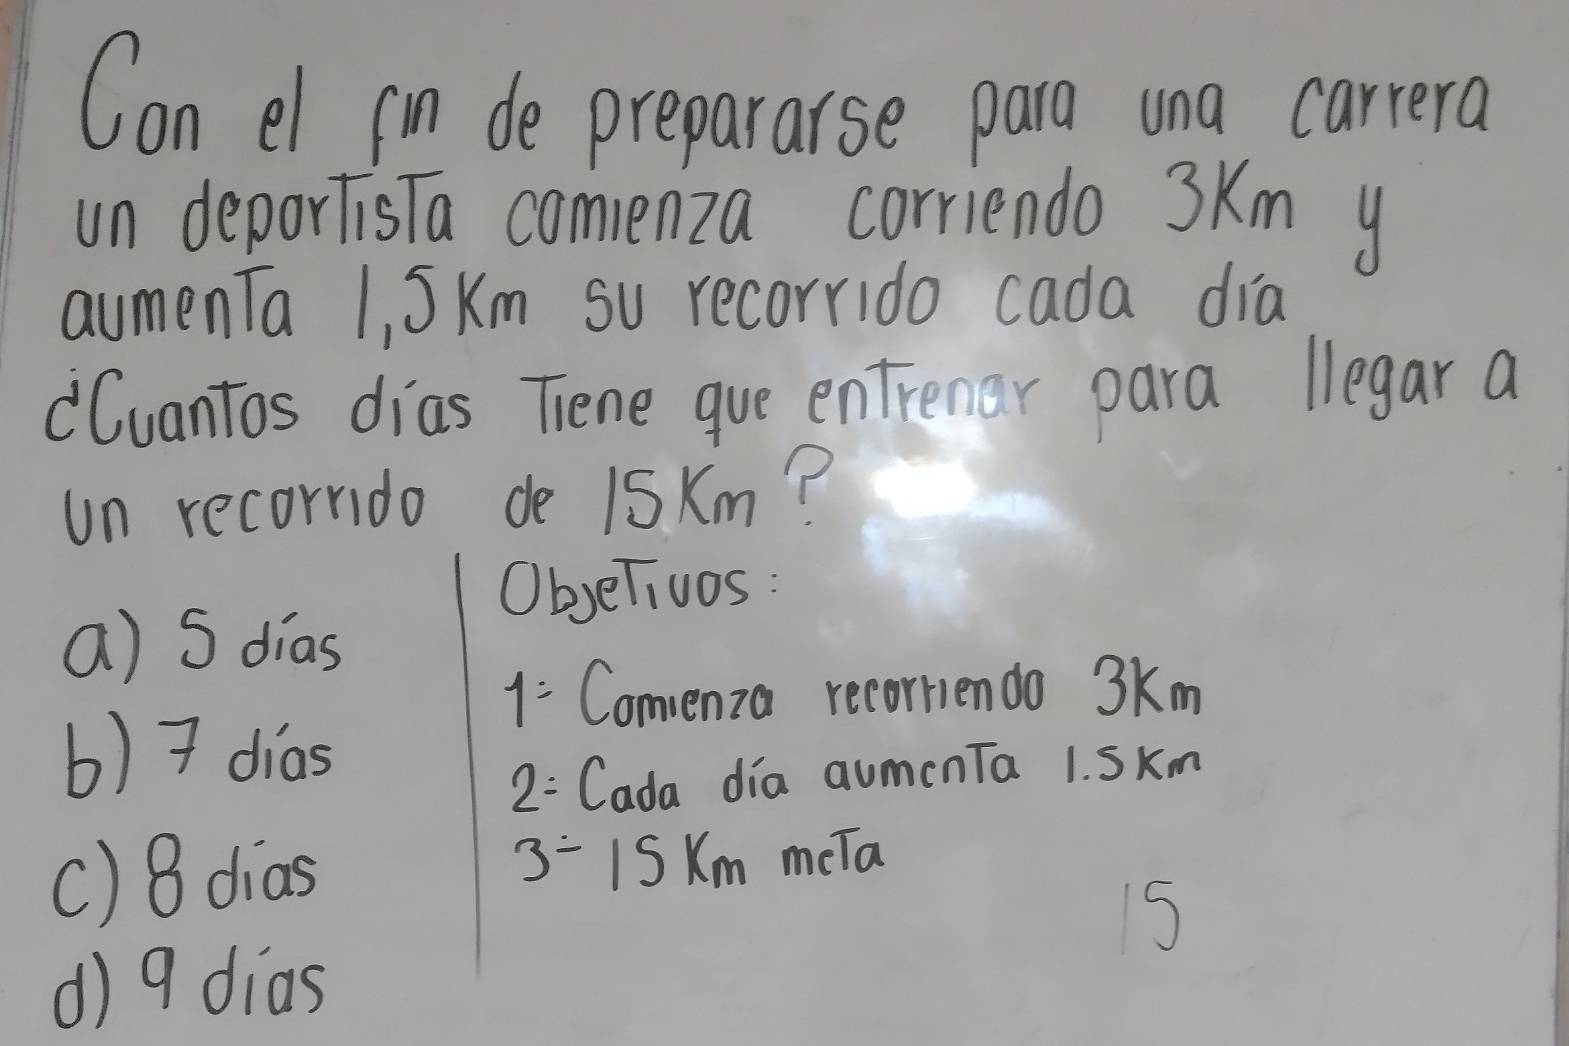 Con el fin de prepararse para una carrera
un deportista comienza corriendo 3Km y
aumenta 1,5Km su recorrido cada día
¿Cuantos días Tiene que entrenar para llegar a
un recorrido de 15Km?
a) 5 días
b) 7 días
c) 8 días
d) 9 días
Objetivos:
1= Comienza recorriendo 3Km
2= Cada día aumenta 1.5Km
3= 15Km meta
15